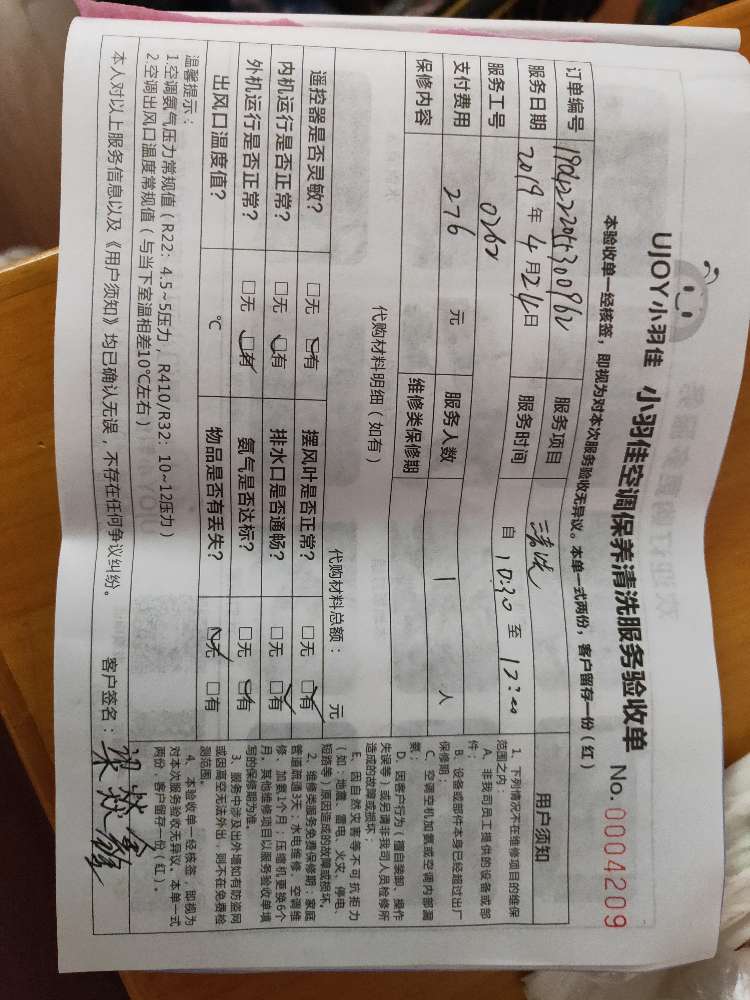 UJOY小羽佳 小羽佳空调保养清洗服务验收单 No. 0004209
本验收单一经核签，即视为对本次服务验收无异议。本单一式两份，客户留存一份（红）
订单编号 服务项目 清洗
服务日期 2019 年 4 月 24 日 服务时间 自 10:30 至 12:00
服务工号 0262
支付费用 276 元 服务人数 1 人
保修内容 维修类保修期
代购材料明细（如有）
代购材料总额： 元
遥控器是否灵敏？ □无 □有 摆风叶是否正常？ □无 □有
内机运行是否正常？ □无 □有 排水口是否通畅？ □无 □有
外机运行是否正常？ □无 □有 氨气是否达标？ □无 □有
出风口温度值？ ℃ 物品是否有丢失？ □无 □有
温馨提示：
1空调氨气压力常规值（R22：4.5~5压力，R410/R32：10~12压力）
2空调出风口温度常规值（与当下室温相差10℃左右）
本人对以上服务信息以及《用户须知》均已确认无误，不存在任何争议纠纷。 客户签名：
用户须知
1、下列情况不在维修项目的维保
范围之内：
A、非我司员工提供的设备或部
件；
B、设备或部件本身已经超过出厂
保修期；
C、空调空机加氨或空调内部漏
氨；
D、因客户行为（擅自装卸、操作
失误等）或另请非我司人员检修所
造成的故障或损坏；
E、因自然灾害等不可抗拒力
（如：地震、雷电、火灾、停电、
短路等）原因造成的故障或损坏。
2、维修类服务免费保修期：家庭
管道疏通3天；水电维修、空调维
修、加氨1个月；压缩机更换6个
月。其他维修项目以服务验收单填
写的保修期为准。
3、服务中涉及出外墙如有防盗网
或因高空无法外出，则不在免费检
测范围。
4、本验收单一经核签，即视为
对本次服务验收无异议。本单一式
两份，客户留存一份（红）。